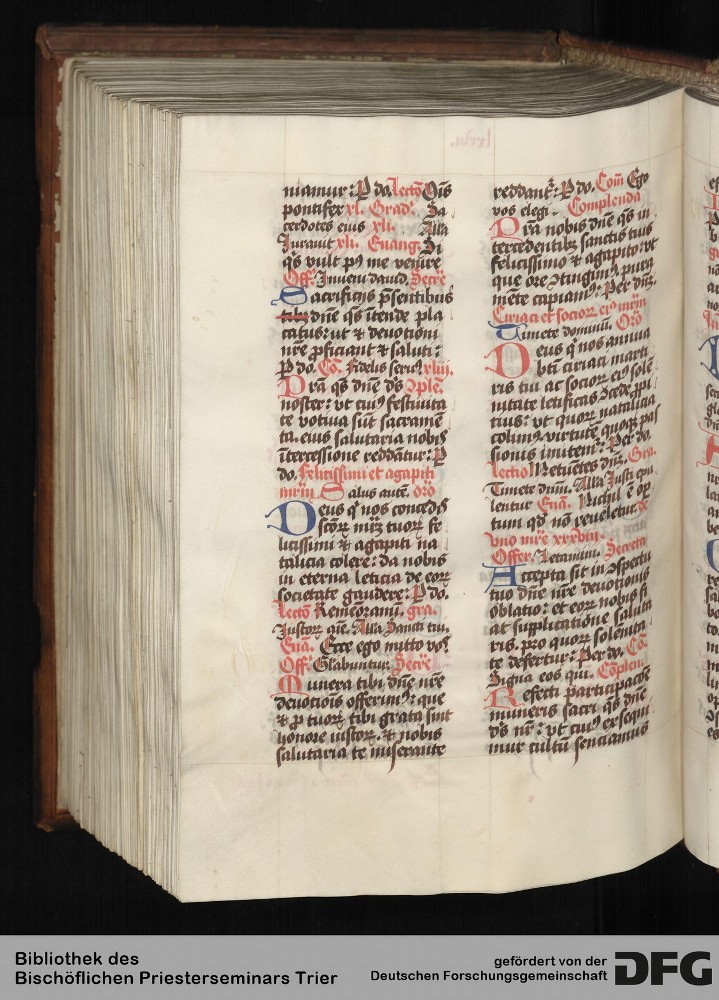 niamur: P do. Lectō Oīs
pontifex xl. Grad. Sa
cerdotes eius xli. Alla
Iurauit xlii. Euang. Si
q̄s vult pꝰ me venire
Off. Inueni dauid. Secre
Sacrificijs p̄sentibus
dn̄e q̄s ītende pla
catus: ut & deuotioni
nr̄e ꝓficiant & saluti:
P do. Cō. Fidelis seruꝰ xliij.
Prā q̄s dn̄e ds̄ Ꝯplen̄.
noster: vt quoꝝ festiuita
te votiua sūt sacramē
ta. eius salutaria nobis
ītercessione reddātur: P
do. Felicissimi et agapiti
mr̄m. Salus autē. or̄o
Deus qͥ nos concedis
scōꝝ mr̄m tuoꝝ fe
licissimi & agapiti na
talicia colere: da nobis
in eterna leticia de eoꝝ
societate gaudere: P do.
Lectō Rememoramī. gra.
Iustoꝝ aīe. Alla Sancti tui.
Euā. Ecce ego mitto vos
Off. Glabuntur. Secre
Munera tibi dn̄e nr̄e
deuotiōis offerimꝰ: que
& ꝓ tuoꝝ tibi grata sint
honore iustoꝝ. & nobis
salutaria te miserante
reddantꝰ: P do. Com̄ Ego
vos elegi. Complenda
Prā nobis dn̄e q̄s in
tercedentibꝫ sanctis tuis
felicissimo & agapito: vt
que ore ꝯtingimꝰ pura
mēte capiamꝰ: Per dn̄ꝫ.
Ciriaci et socioꝝ eiꝰ mr̄m
Timete dominū. Or̄o
Deus qͥ nos annua
bt̄i ciriaci marti
ris tui ac socioꝝ eiꝰ solē
nitate letificas ꝯcede ꝓpi
tius: vt quoꝝ natalicia
colimꝰ. virtutē quoqꝫ pas
sionis imitemꝰ: Per do.
Lectio Metuētes dn̄ꝫ. Gra.
Timete dn̄m. Alla Iusti epu
lentur Euā. Nichil ē oꝑ
tum qd̄ nō reueletur. de
vno mr̄e xxxviij.
Offer. Letamini. Secreta
Accepta sit in ꝯspectu
tuo dn̄e nr̄e deuotionis
oblatio: et eoꝝ nobis fi
at supplicatiōe saluta
ris. pro quoꝝ solēnita
te defertur: Per do. Cō.
Signa eos qui. Cōplen.
Refecti participacōe
muneris sacri q̄s dn̄e
ds̄ nr̄: vt cuiꝰ exsequi
mur cultū senciamus
Bibliothek des
Bischöflichen Priesterseminars Trier
gefördert von der
Deutschen Forschungsgemeinschaft
DFG